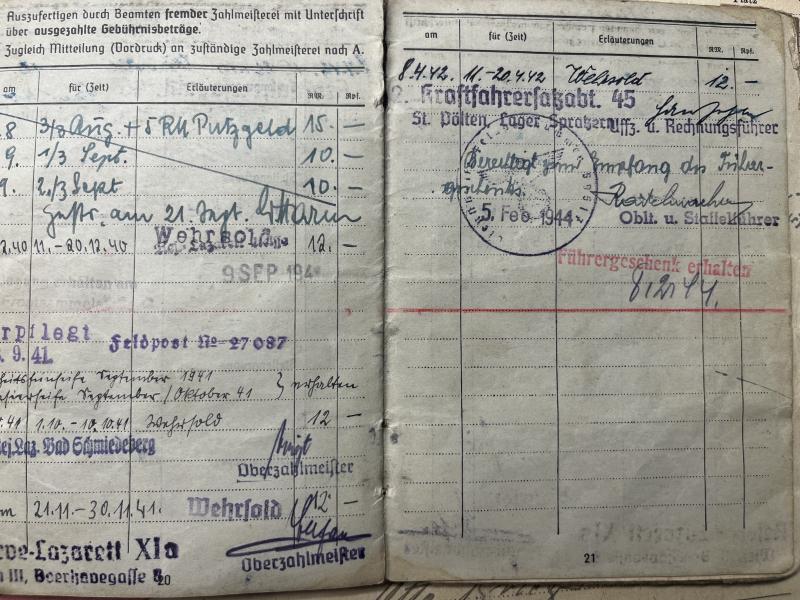 Auszufertigen durch Beamten fremder Zahlmeisterei mit Unterschrift
über ausgezahlte Gebührnisbeträge.
Zugleich Mitteilung (Vordruck) an zuständige Zahlmeisterei nach A.
am für (Zeit) Erläuterungen RM. Rpf.
8 3/8 Aug. + 5 RM Putzgeld 15. —
9. 1/3 Sept. 10. —
9. 2/3 Sept 10. —
am 21. Sept.
12.40 11. – 20.12.40 Wehrsold 12. —
9 SEP 194
rpflegt
9. 41. Feldpost No 27087
September 1941
September / Oktober 41 } erhalten
41 1.10. – 10.10.41 Wehrsold 12 —
Laz. Bad Schmiedeberg
Oberzahlmeister
21.11. – 30.11.41. Wehrsold 12 —
rve-Lazarett XIa
III, Boerhavegasse
Oberzahlmeister
20
Platz
am für (Zeit) Erläuterungen RM. Rpf.
8.4.42. 11. – 20.4.42 Wehrsold 12. —
2. Kraftfahrersatzabt. 45
St. Pölten, Lager Spratzern Uffz. u. Rechnungsführer
Berechtigt zum Empfang des Führer-
geschenks.
5. Feb. 1944
Oblt. u. Staffelführer
Führergeschenk erhalten
8.2.44.
21